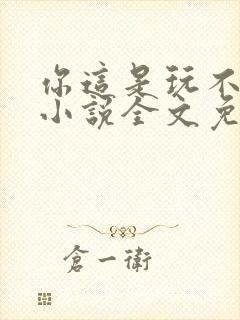 你這是玩不
小說全文免
倉一衛